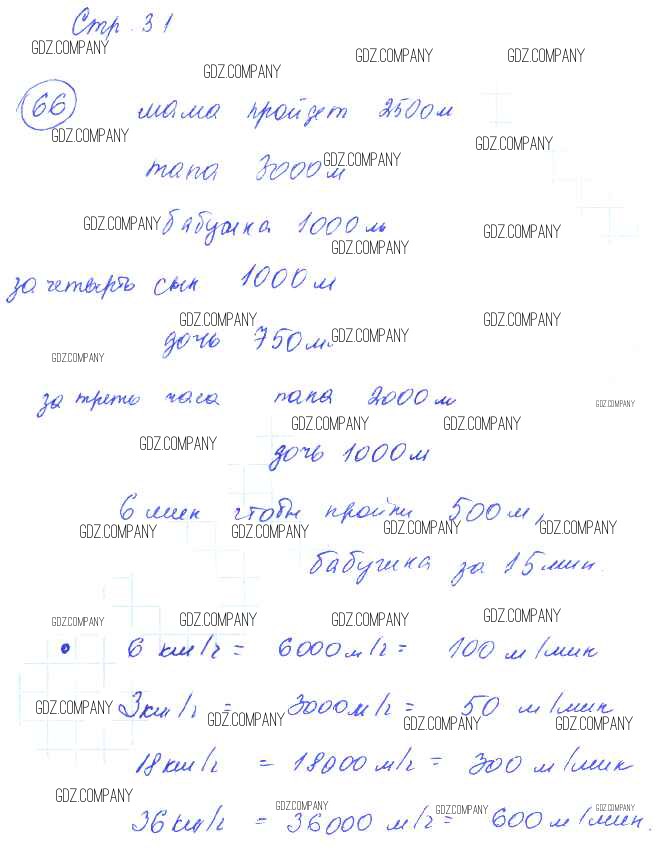 Стр. 31
GDZ.COMPANY GDZ.COMPANY GDZ.COMPANY
GDZ.COMPANY
66 мама пройдет 2500м
GDZ.COMPANY
GDZ.COMPANY
папа 3000м GDZ.COMPANY
GDZ.COMPANY бабушка 1000м GDZ.COMPANY
GDZ.COMPANY
за четверть сын 1000м
GDZ.COMPANY GDZ.COMPANY
дочь 750м. GDZ.COMPANY
GDZ.COMPANY
за треть часа папа 2000м GDZ.COMPANY
GDZ.COMPANY GDZ.COMPANY
GDZ.COMPANY дочь 1000м
6 мин чтобы пройти 500м,
GDZ.COMPANY GDZ.COMPANY GDZ.COMPANY GDZ.COMPANY
бабушка за 15 мин.
GDZ.COMPANY GDZ.COMPANY GDZ.COMPANY GDZ.COMPANY
• 6 км/ч = 6000м/ч = 100 м/мин
GDZ.COMPANY 3км/ч = 3000м/ч = 50 м/мин
GDZ.COMPANY GDZ.COMPANY GDZ.COMPANY
18км/ч = 18000 м/ч = 300 м/мин
GDZ.COMPANY
GDZ.COMPANY GDZ.COMPANY GDZ.COMPANY
36км/ч = 36000 м/ч = 600м/мин.